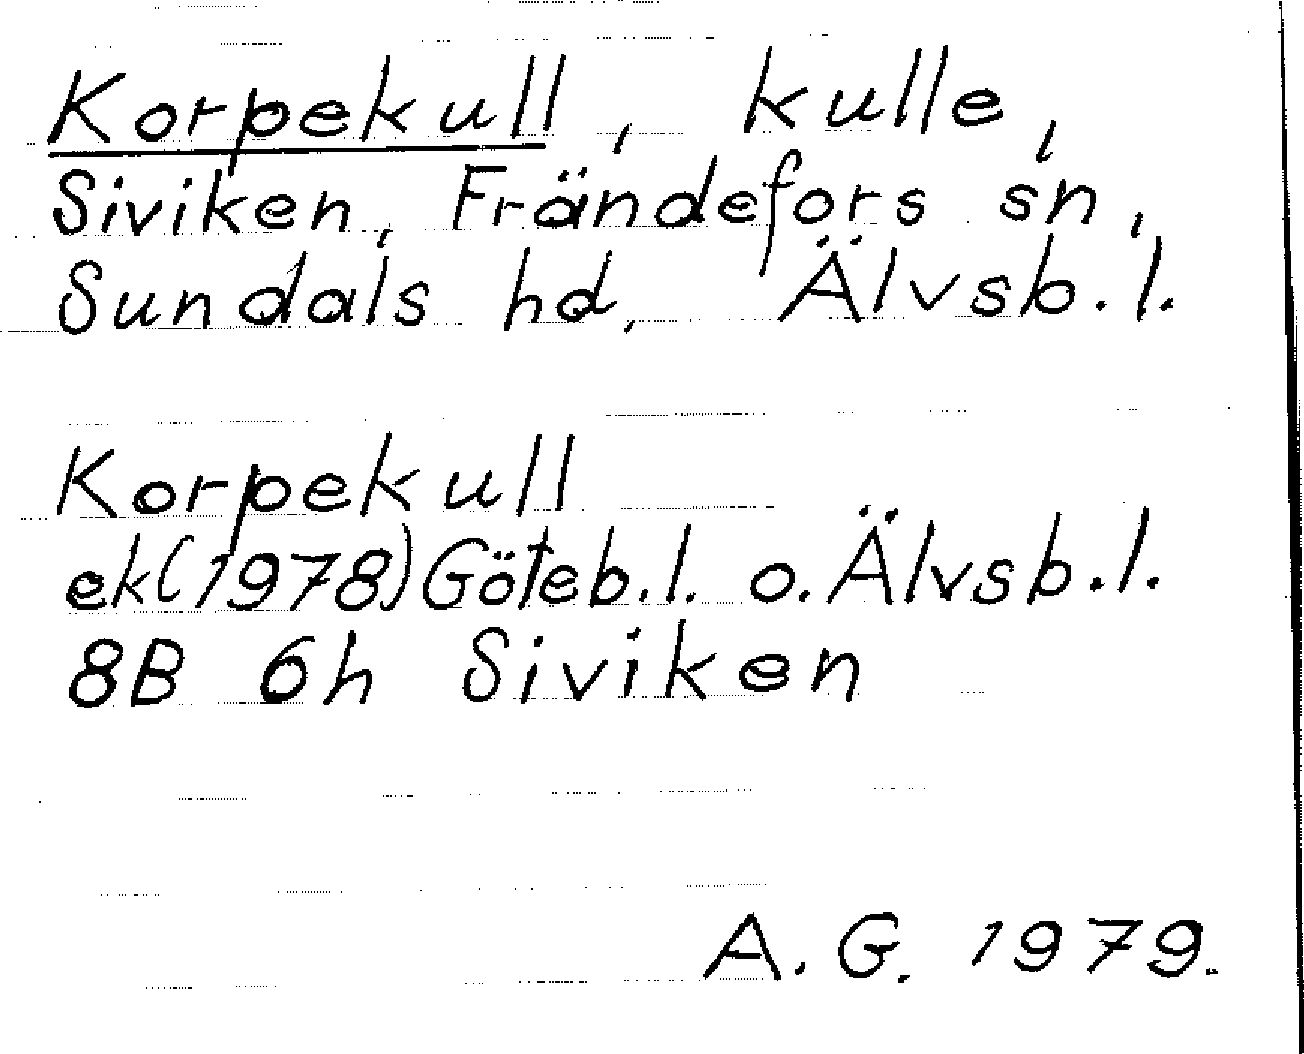 Korpekull, kulle,
Siviken, Frändefors sn,
Sundals hd, Älvsb.l.
Korpekull
ek(1978)Göteb.l. o. Älvsb.l.
8B 6h Siviken
A.G. 1979.